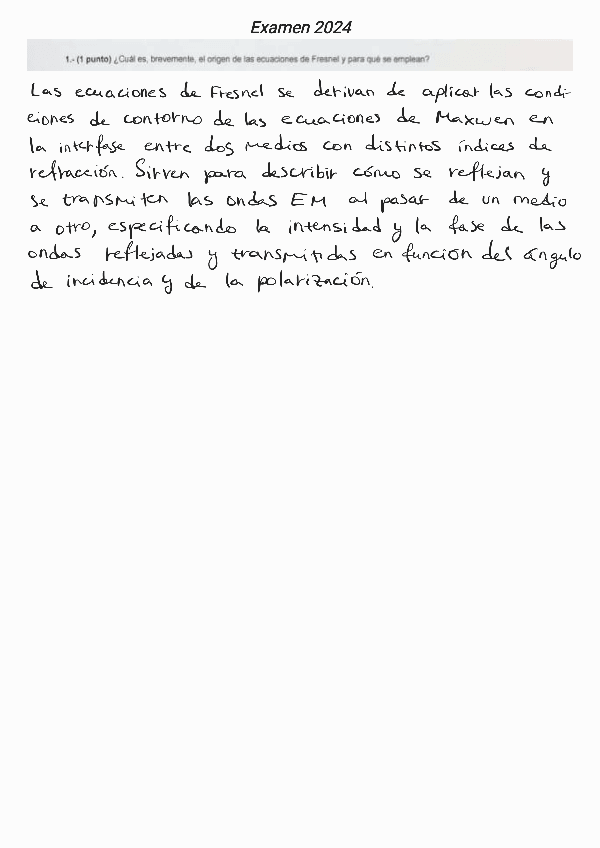 Examen 2024
1.- (1 punto) ¿Cuál es, brevemente, el origen de las ecuaciones de Fresnel y para qué se emplean?
Las ecuaciones de Fresnel se derivan de aplicar las condi-
ciones de contorno de las ecuaciones de Maxwell en
la interfase entre dos medios con distintos índices de
refracción. Sirven para describir cómo se reflejan y
se transmiten las ondas EM al pasar de un medio
a otro, especificando la intensidad y la fase de las
ondas reflejadas y transmitidas en función del ángulo
de incidencia y de la polarización.